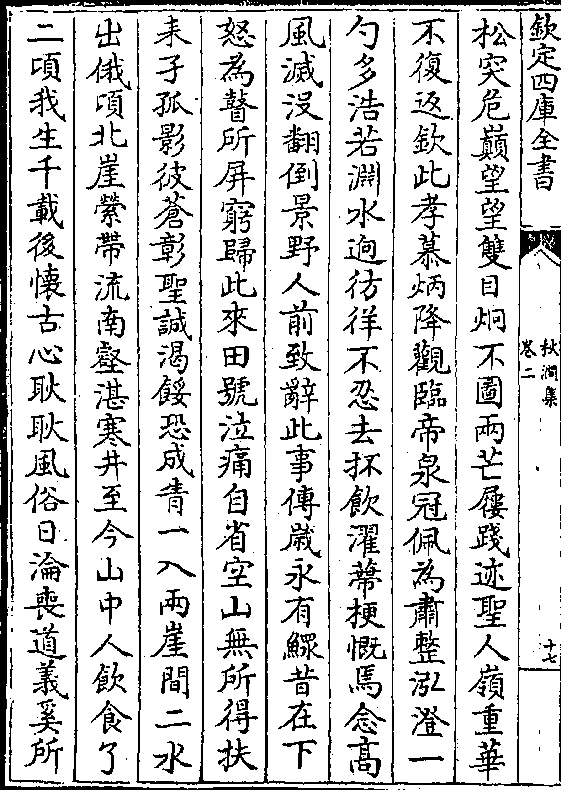 欽定四庫全書
秋澗集
卷二
十七
松突危巔望望雙目炯不圖兩芒屨踐迹聖人嶺重華
不復返欽此孝慕炳降觀臨帝泉冠佩為肅整泓澄一
勺多浩若淵水逈彷徉不忍去抔飲濯蔕梗慨焉念髙
風滅没翻倒景野人前致辭此事傳歲永有鰥昔在下
怒為瞽所屏窮歸此來田號泣痛自省空山無所得扶
耒孑孤影彼蒼彰聖誠渇餒恐成眚一入兩崖間二水
出俄頃北崖縈帶流南壑湛寒井至今山中人飲食了
二頃我生千載後懷古心耿耿風俗日淪喪道義奚所